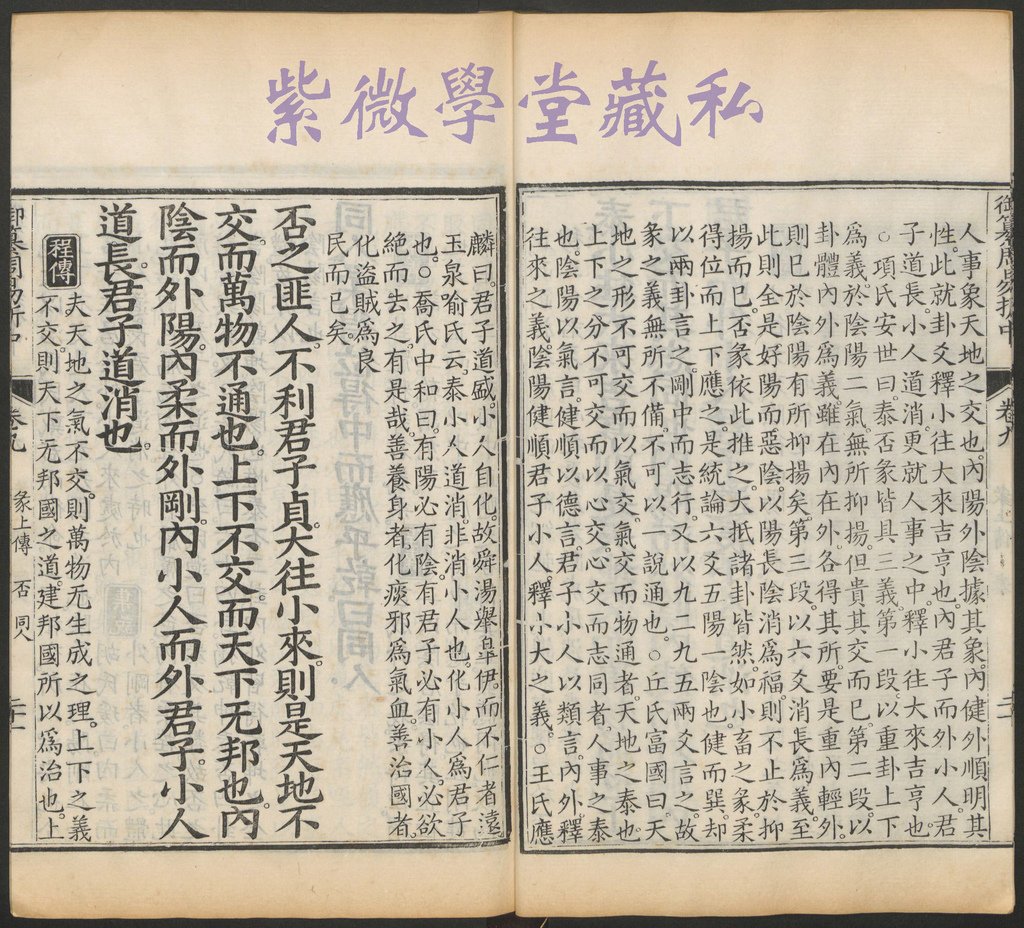 紫微學堂藏私
人事象天地之交也。內陽外陰據其象。內健外順明其
性。此就卦爻釋小往大來吉亨也。內君子而外小人君
子道長。小人道消。更就人事之中。釋小往大來吉亨也
○項氏安世曰。泰否彖皆具三義。第一段以重卦上下
爲義於陰陽二氣無所抑揚。但貴其交而已。第二段以
卦體內外爲義雖在內在外。各得其所。要是重內輕外。
則已於陰陽有所抑揚矣。第三段以六爻消長爲義。至
此則全是好陽而惡陰。以陽長陰消爲福。則不止於抑
揚而已。否彖依此推之。大抵諸卦皆然。如小畜之彖。柔
得位而上下應之。是統論六爻五陽一陰也。健而巽。却
以兩卦言之。剛中而志行。又以九二九五兩爻言之。故
彖之義無所不備。不可以一說通也。○丘氏富國曰。天
地之形不可交而以氣交。氣交而物通者。天地之泰也
上下之分不可交而以心交。心交而志同者。人事之泰
也。陰陽以氣言。健順以德言。君子小人以類言。內外釋
往來之義。陰陽健順君子小人釋小大之義。○王氏應
麟曰。君子道盛。小人自化。故舜湯舉皐伊。而不仁者遠。
玉泉喻氏云。泰小人道消。非消小人也。化小人爲君子
也。○喬氏中和曰。有陽必有陰。有君子必有小人。必欲
絶而去之。有是哉。善養身者。化痰邪爲氣血。善治國者。
化盜賊爲良
民而已矣。
否之匪人。不利君子貞。大往小來。則是天地不
交。而萬物不通也。上下不交。而天下无邦也。內
陰而外陽。內柔而外剛。內小人而外君子。小人
道長。君子道消也。
程傳
夫天地之氣不交。則萬物无生成之理。上下之義
不交。則天下无邦國之道。建邦國所以爲治也。上
御纂周易折中
卷九
彖上傳 否 同人